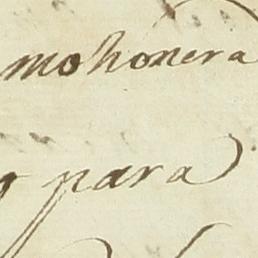 mohonera
para